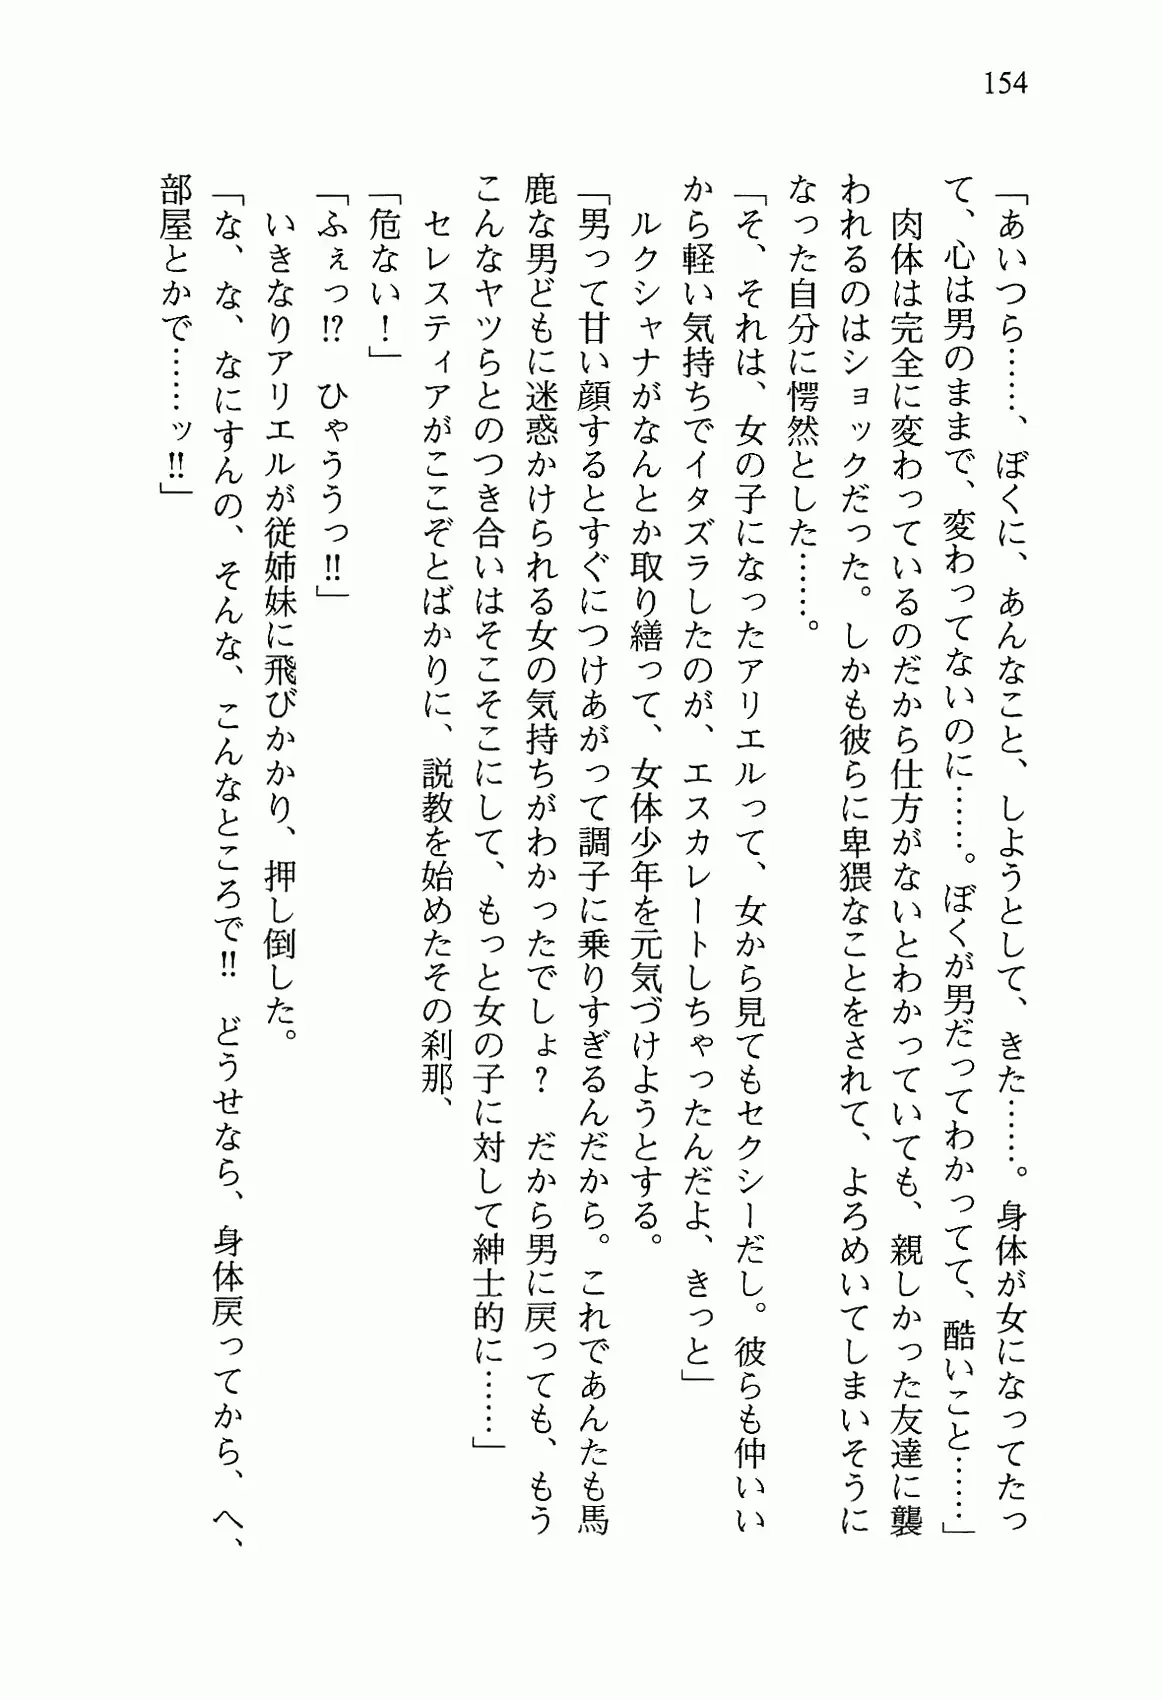 154
「あいつら……、ぼくに、あんなこと、しようとして、きた……。身体が女になってたっ
て、心は男のままで、変わってないのに……。ぼくが男だってわかってて、酷いこと……」
　肉体は完全に変わっているのだから仕方がないとわかっていても、親しかった友達に襲
われるのはショックだった。しかも彼らに卑猥なことをされて、よろめいてしまいそうに
なった自分に愕然とした……。
「そ、それは、女の子になったアリエルって、女から見てもセクシーだし。彼らも仲いい
から軽い気持ちでイタズラしたのが、エスカレートしちゃったんだよ、きっと」
　ルクシャナがなんとか取り繕って、女体少年を元気づけようとする。
「男って甘い顔するとすぐにつけあがって調子に乗りすぎるんだから。これであんたも馬
鹿な男どもに迷惑かけられる女の気持ちがわかったでしょ？　だから男に戻っても、もう
こんなヤツらとのつき合いはそこそこにして、もっと女の子に対して紳士的に……」
　セレスティアがここぞとばかりに、説教を始めたその刹那、
「危ない！」
「ふぇっ!?　ひゃううっ!!」
　いきなりアリエルが従姉妹に飛びかかり、押し倒した。
「な、な、なにすんの、そんな、こんなところで!!　どうせなら、身体戻ってから、へ、
部屋とかで……ッ!!」